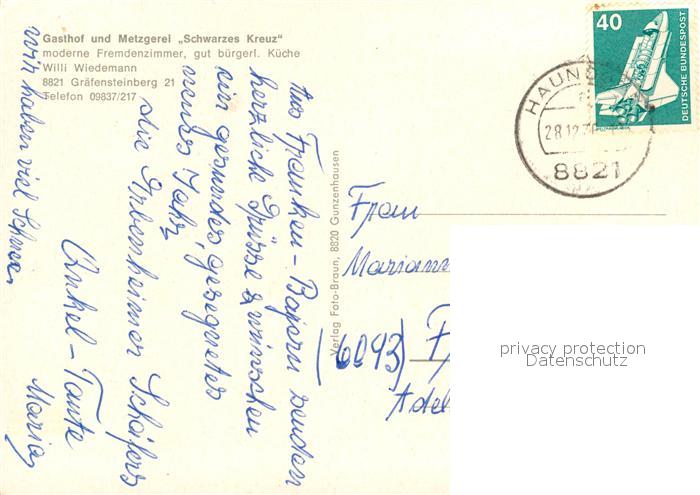 Gasthof und Metzgerei „Schwarzes Kreuz“
moderne Fremdenzimmer, gut bürgerl. Küche
Willi Wiedemann
8821 Gräfensteinberg 21
Telefon 09837/217
Aus Franken-Bayern senden
herzliche Grüsse & wünschen
ein gesundes, gesegnetes
neues Jahr
die Erbenheimer Schäfers
Onkel-Tante
Maria
wir haben viel Schnee
Verlag Foto-Braun, 8820 Gunzenhausen
40
DEUTSCHE BUNDESPOST
HAUND
28.12.7
8821
Frau
Mariann
(6093) F
Adel
privacy protection
Datenschutz